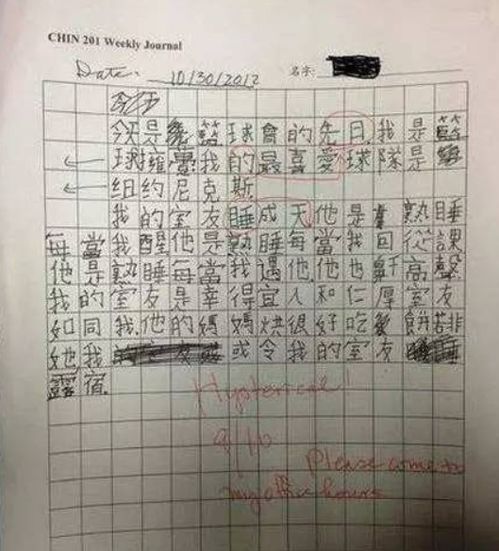 CHIN 201 Weekly Journal
Date: 10/30/2012 名字:
今天是籃球會的先日.我是籃
球擁躉我的最喜愛球隊是
纽约尼克斯
我的室友睡成天他是熟睡
每當我醒他是熟睡每當我回從課
他是熟睡每當我遇他.他也鼾高聲
我的室友是幸得宜人和仁厚室友
如同我.他的媽媽烘很好吃餅若非
她我或令我的室友
露宿.
Hysterical!
9/10
Please come to
my office hours